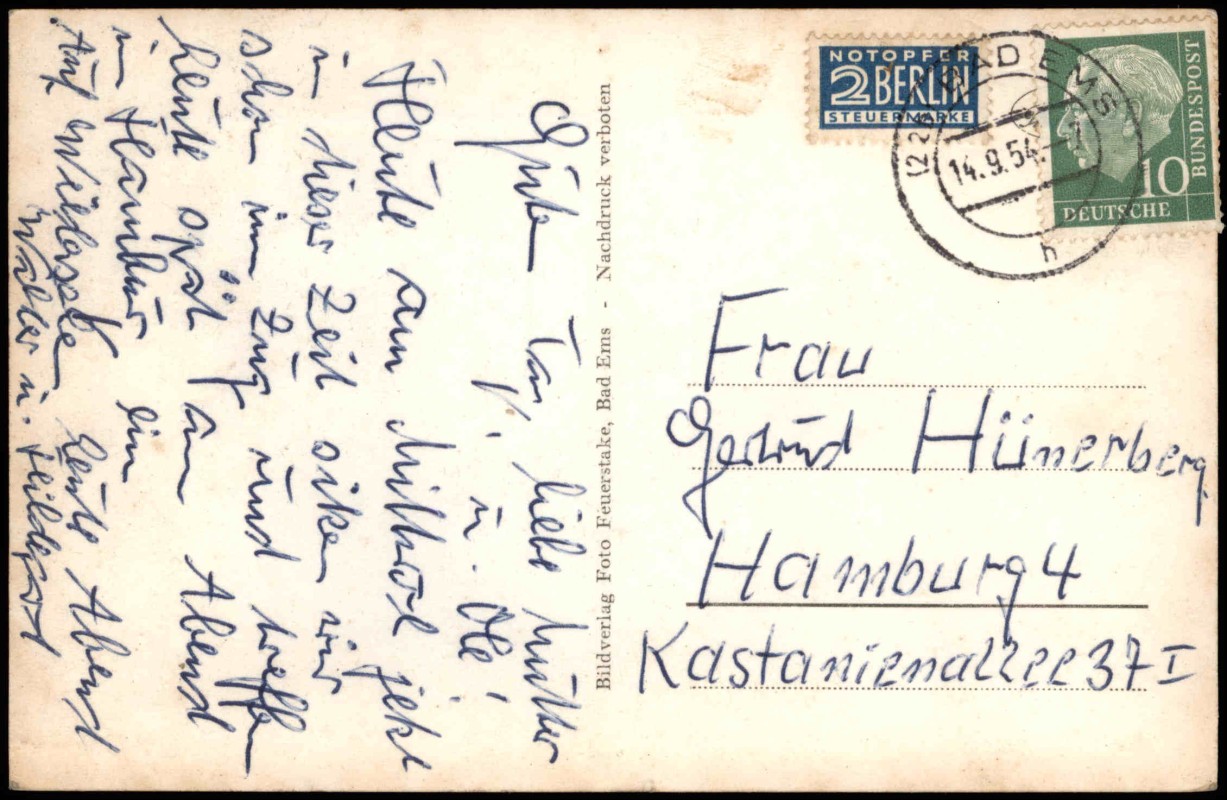 Guten Tag, liebe Mutter
u. Olé!
Heute am Mittwoch jetzt
in dieser Zeit sitzen wir
schon im Zug und treffen
heute spät am Abend
in Hamburg ein
Auf Heute Abend
Walter u. Hildegard
Bildverlag Foto Feuerstake, Bad Ems - Nachdruck verboten
NOTOPFER
2 BERLIN
STEUERMARKE
BAD EMS
14.9.54
h
10
DEUTSCHE
BUNDESPOST
Frau
Gertrud Hünerberg
Hamburg 4
Kastanienallee 37 I